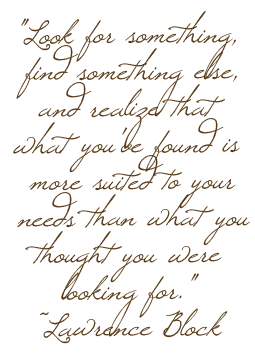 "Look for something,
find something else,
and realize that
what you've found is
more suited to your
needs than what you
thought you were
looking for."
~Lawrence Block